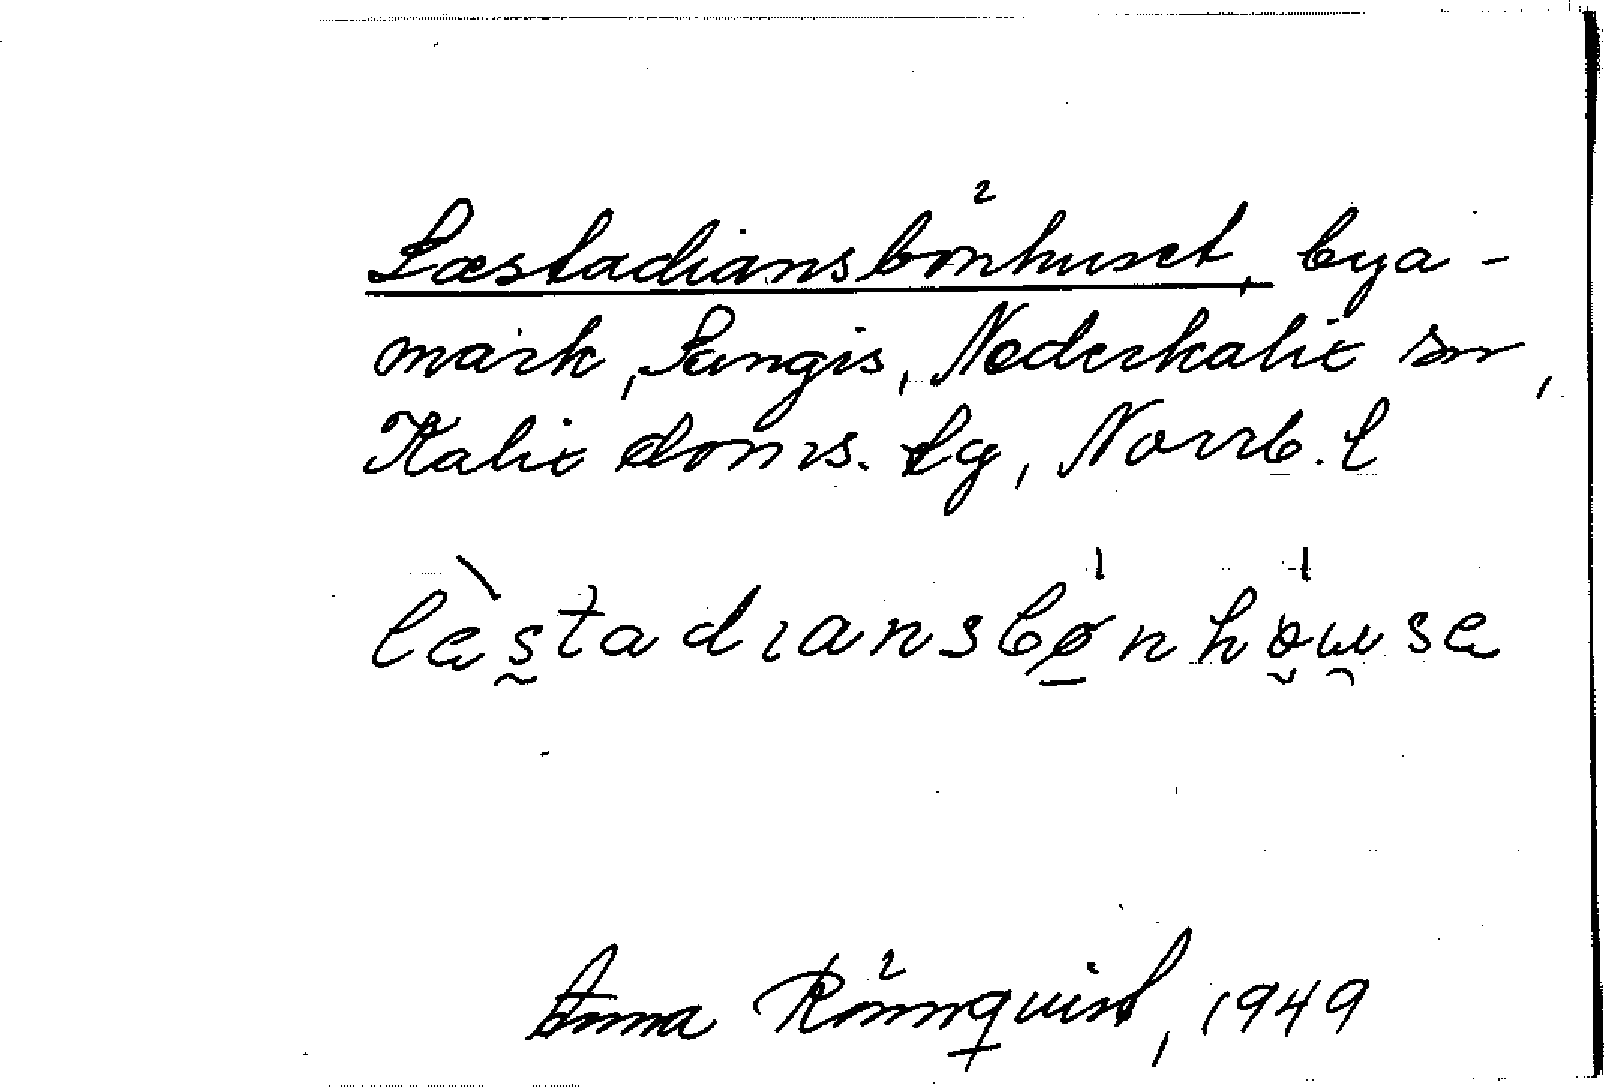 Læstadiansbönhuset, bya-
mark, Sangis, Nederkalix sn,
Kalix doms. tg, Norrb. l
lèstadiansbø̱nhöuse
Anna Rönnquist, 1949